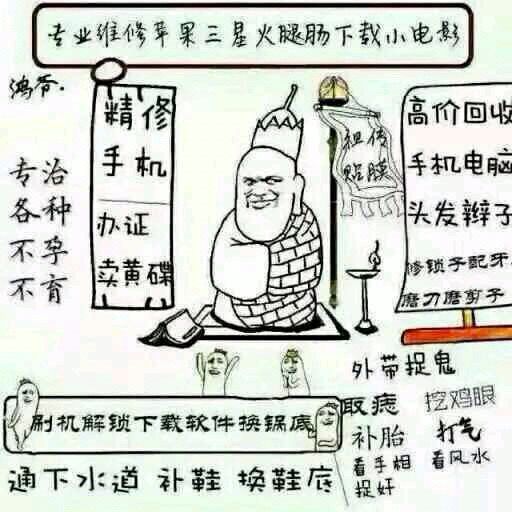 专业维修苹果三星火腿肠下载小电影
鸿爷.
精修
手机
办证
卖黄碟
专治
各种
不孕
不育
祖传
贴膜
高价回收
手机电脑
头发辫子
修锁子配牙
磨刀磨剪子
外带捉鬼
刷机解锁下载软件换锅底
取痣 挖鸡眼
补胎 打气
看手相 看风水
捉奸
通下水道 补鞋 换鞋底